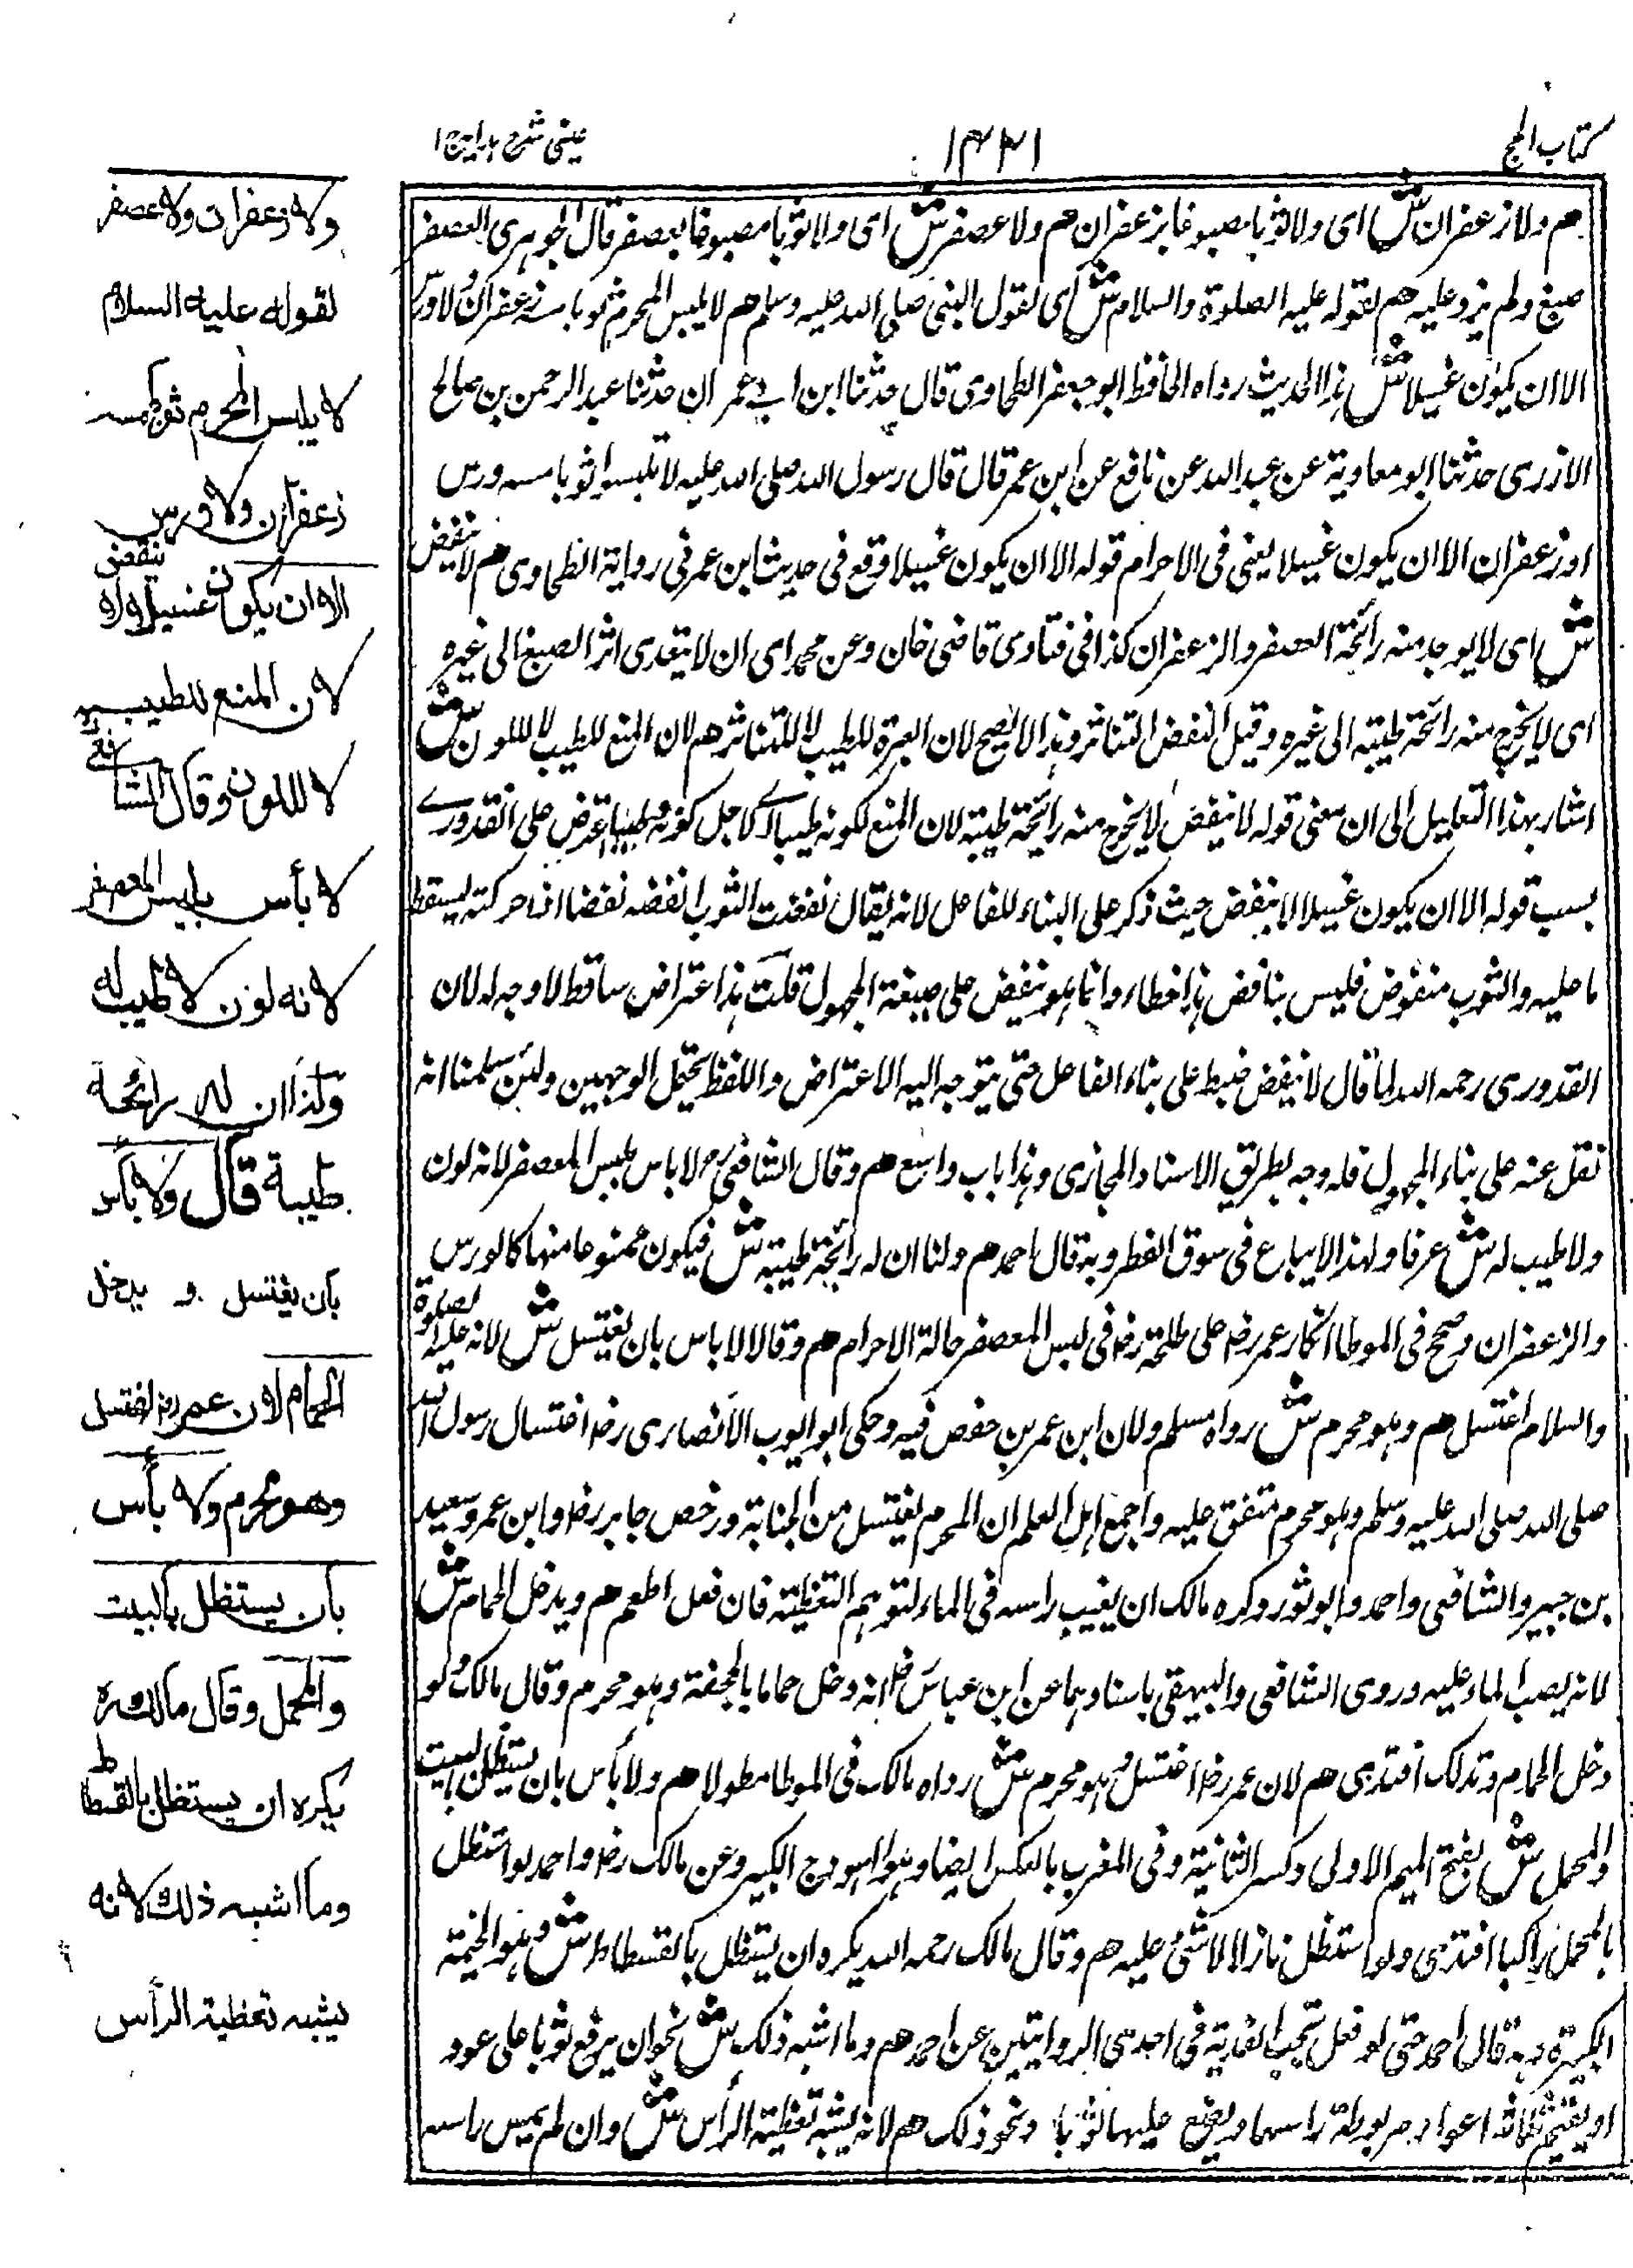 كتاب الحج
١٤٣١
عيني شرح هداية ج ١
هم ولا زعفران ش اى ولا ثوبا مصبوغا بزعفران هم ولا عصفر ش اى ولا ثوبا مصبوغا بعصفر قال الجوهرى العصفر
صبغ ولم يزد عليه هم لقوله عليه الصلوة والسلام ش اى لقول النبى صلى الله عليه وسلم هم لا يلبس المحرم ثوبا مسه زعفران ولا ورس
الا ان يكون غسيلا ش هذا الحديث رواه الحافظ ابو جعفر الطحاوى قال حدثنا ابن ابى عمران حدثنا عبد الرحمن بن صالح
الازدى حدثنا ابو معاوية عن عبيد الله عن نافع عن ابن عمر قال قال رسول الله صلى الله عليه لا تلبسوا ثوبا مسه ورس
او زعفران الا ان يكون غسيلا يعنى فى الاحرام قوله الا ان يكون غسيلا وقع فى حديث ابن عمر فى رواية الطحاوى هم لا ينفض
ش اى لا يوجد منه رائحة العصفر والزعفران كذا فى فتاوى قاضى خان وعن محمد اى ان لا يتعدى اثر الصبغ الى غيره
اى لا يخرج منه رائحة طيبة الى غيره وقيل النفض التناثر وهذا لا يصح لان العبرة للطيب لا للتناثر هم لان المنع للطيب لا للون ش
اشار بهذا التعليل الى ان معنى قوله لا ينفض لا يخرج منه رائحة طيبة لان المنع لكونه طيبا اى لاجل كونه مطيبا اعترض على القدورى
بسبب قوله الا ان يكون غسيلا لا ينفض حيث ذكر على البناء للفاعل لانه يقال نفضت الثوب انفضه نفضا اذا حركته ليسقط
ما عليه والثوب منفوض فليس بنافض هذا خطاء وانما هو ينفض على صيغة المجهول قلت هذا اعتراض ساقط لا وجه له لان
القدورى رحمه الله لما قال لا ينفض ضبط على بناء الفاعل حتى يتوجه اليه الاعتراض واللفظ يحتمل الوجهين ولئن سلمنا انه
نقل عنه على بناء المجهول فله وجه بطريق الاسناد المجازى وهذا باب واسع هم وقال الشافعى رح لا باس بلبس المعصفر لانه لون
ولا طيب له ش عرفا ولهذا لا يباع فى سوق العطر وبه قال احمد هم ولنا ان له رائحة طيبة ش فيكون ممنوعا منها كالورس
والزعفران وصح فى الموطا انكار عمر رض على طلحة رض فى لبس المعصفر حالة الاحرام هم وقالا لا باس بان يغتسل ش لانه عليه الصلوة
والسلام اغتسل هم وهو محرم ش رواه مسلم ولان ابن عمر بن حفص فيه وحكى ابو ايوب الانصارى رض اغتسال رسول الله
صلى الله صلى الله عليه وسلم وهو محرم متفق عليه واجمع اهل العلم ان المحرم يغتسل من الجنابة ورخص جابر رض وابن عمر وسعيد
بن جبير والشافعى واحمد وابو ثور وكره مالك ان يغيب راسه فى الماء لتوهم التغطية فان فعل اطعم هم ويدخل الحمام ش
لانه يصب الماء عليه وروى الشافعى والبيهقى باسنادهما عن ابن عباس رض انه دخل حماما بالجحفة وهو محرم وقال مالك لو
دخل الحمام وتدلك افتدى هم لان عمر رض اغتسل وهو محرم ش رواه مالك فى الموطا مطولا هم ولا بأس بان يستظل بالبيت
والمحمل ش بفتح الميم الاولى وكسر الثانية وفى المغرب بالعكس ايضا وهو الهودج الكبير وعن مالك رض واحمد لو استظل
بالمحمل راكبا افتدى ولو استظل نازلا لا شئ عليه هم وقال مالك رحمه الله يكره ان يستظل بالفسطاط ش وهو الخيمة
الكبيرة وبه قال احمد حتى لو فعل تجب الفدية فى احدى الروايتين عن احمد هم وما اشبه ذلك ش نحو ان يرفع ثوبا على عود
او يقيم ثلاثة اعواد مربوطة راسها ويضع عليها ثوبا ونحو ذلك هم لانه يشبه تغطية الرأس ش وان لم يمس راسه
ولا زعفران ولا عصفر
لقوله عليه السلام
لا يلبس المحرم ثوبا مسه
زعفران ولا ورس
الا ان يكون غسيلا لا ينفض
لان المنع للطيب
لا للون وقال الشافعى
لا بأس بلبس المعصفر
لانه لون لا طيب له
ولنا ان له رائحة
طيبة قال ولا بأس
بان يغتسل و يدخل
الحمام لان عمر رض اغتسل
وهو محرم ولا بأس
بان يستظل بالبيت
والمحمل وقال مالك ره
يكره ان يستظل بالفسطاط
وما اشبه ذلك لانه
يشبه تغطية الرأس